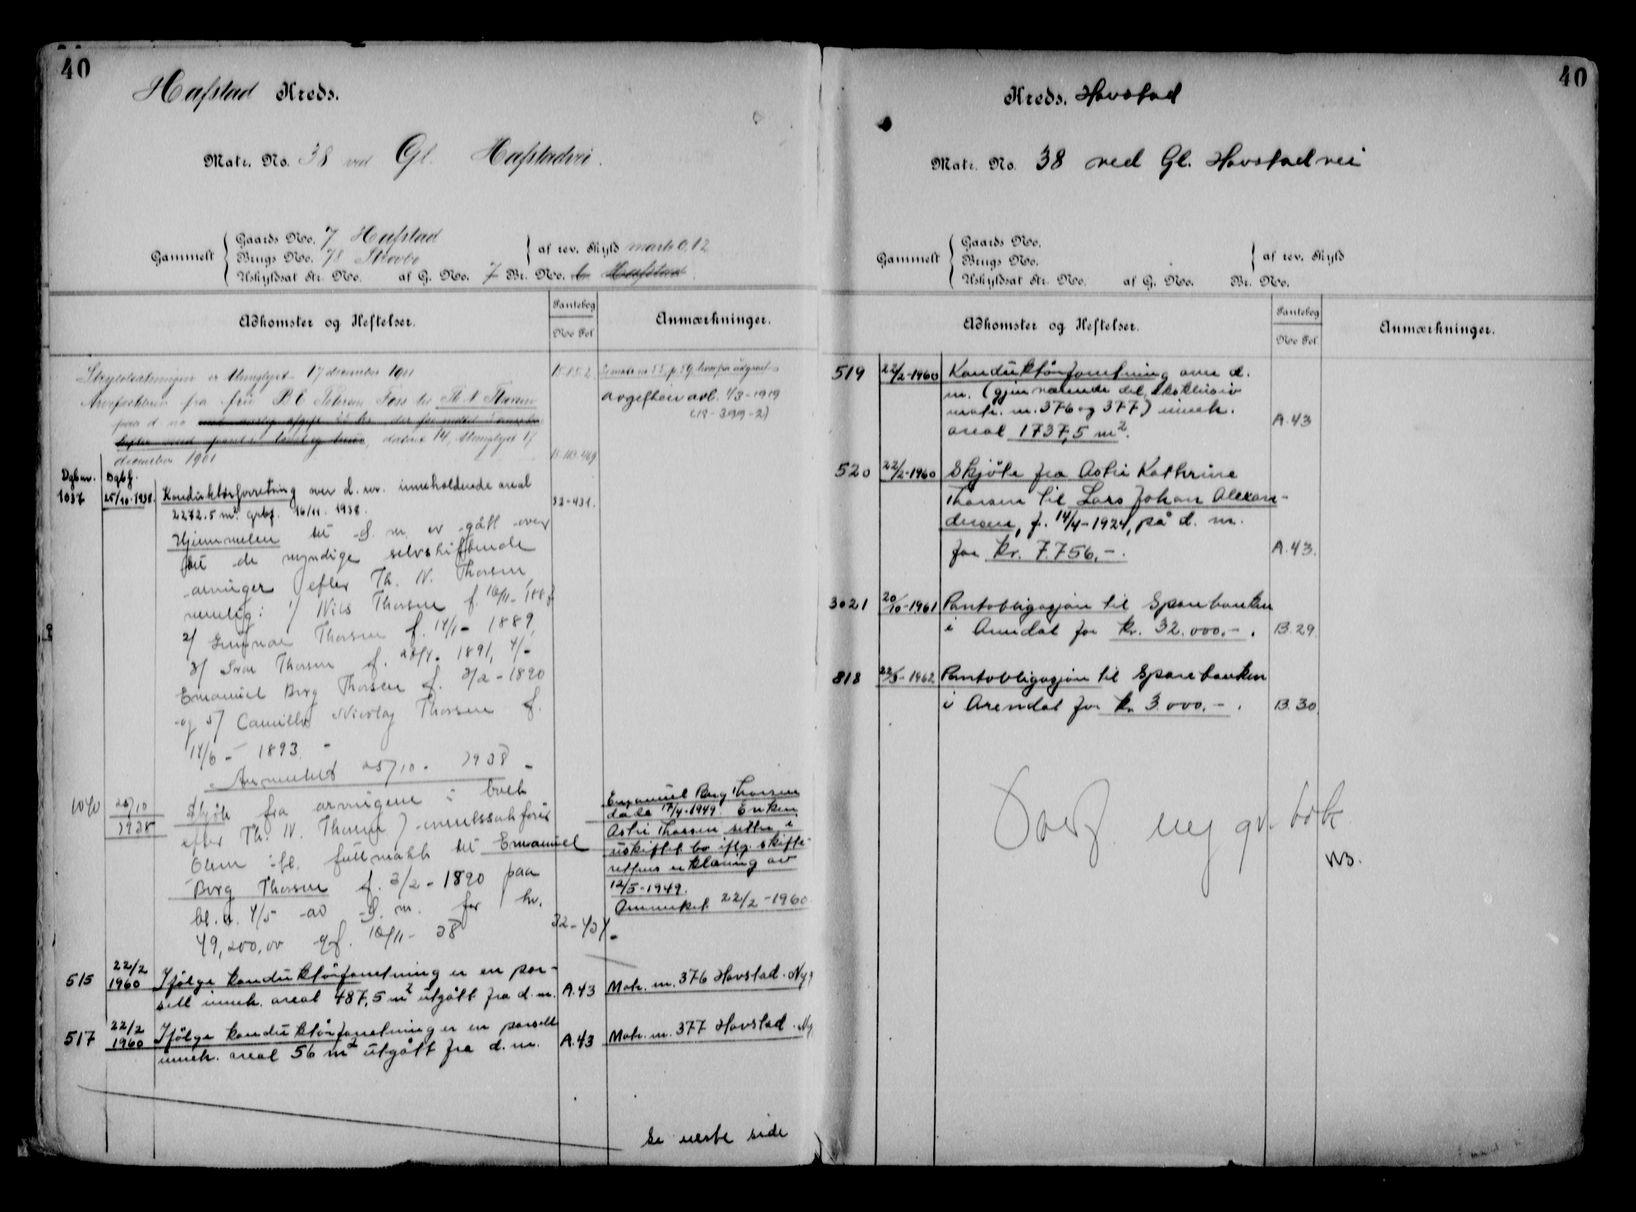 40
Hafstad Kreds.
Matr. No. 38 ved Gl. Hafstadvei.
Gammelt
Gaards No. 7 Hafstad
Brugs No. 78
Uskyldsat Nr. No. af G. No. 7 Br. No.
af rev. Skyld mark 0,12
Adkomster og Heftelser.
Pantebog
No Fol.
Anmærkninger.
Skylddelingen er thinglyst 17 december 1901
Arvefæsteret fra fru
december 1901
avgiften avl. 1/3-1919
(18-399-2)
Dgbnr. Dgbf.
1037 25/10-1938. Konduktørforretning over d. nr. inneholdende areal
2272.5 m² grbf. 16/11. 1938. 32-431.
Hjemmelen til d. m. er gått over
til de myndige selvskiftende
arvinger efter Th. N. Thorsen
nemlig: 1/ Nils Thorsen f.
2/ Gunnar Thorsen f. 14/1-1889,
3/ Ivar Thorsen f. 1891, 4/
Emanuel Borg Thorsen f. 3/2-1890
og 5/ Camilla Nicolay Thorsen f.
14/6-1893.
Anmerket 25/10-1938
1040 25/10 1938 Skjöte fra arvingene i boet
efter Th. N. Thorsen v. overrettssakfører
fullmakt til Emanuel
Borg Thorsen f. 3/2-1890 paa
bl. a. 4/5 av d. m. for kr.
49,200,00 gf. 16/11-38 32-434
Emanuel Borg Thorsen
døde 17/4-1949. Enken
Astri Thorsen sitter i
uskiftet bo iflg. skifte-
rettens erklæring av
12/5-1949.
Anmerket 22/2-1960.
515 22/2 1960 Ifölge konduktörforretning er en par-
sell inneh. areal 487,5 m² utgått fra d. m. A.43 Matr. nr. 376 Havstad.
517 22/2 1960 Ifölge konduktörforretning er en parsell
inneh. areal 56 m² utgått fra d. m. A.43 Matr. nr. 377 Havstad.
Se neste side
40
Kreds. Havstad
Matr. No. 38 ved Gl. Havstadvei
Gammelt
Gaards No.
Brugs No.
Uskyldsat Nr. No. af G. No. Br. No.
af rev. Skyld
Adkomster og Heftelser.
Pantebog
No Fol.
Anmærkninger.
519 22/2-1960 Konduktörforretning over d.
m. (gjenværende del, eksklusiv
matr. nr. 376 og 377) inneh.
areal 1737,5 m². A.43
520 22/2-1960 Skjöte fra Astri Kathrine
Thorsen til Lars Johan Alexan-
dersen, f. 14/4-1924, på d. m.
for kr. 7.756,-. A.43.
3021 20/10-1961 Pantobligasjon til Sparebanken
i Arendal for kr. 32.000.-. B.29.
818 22/3-1962 Pantobligasjon til Sparebanken
i Arendal for kr. 3.000.-. B.30.
ny gr. bok